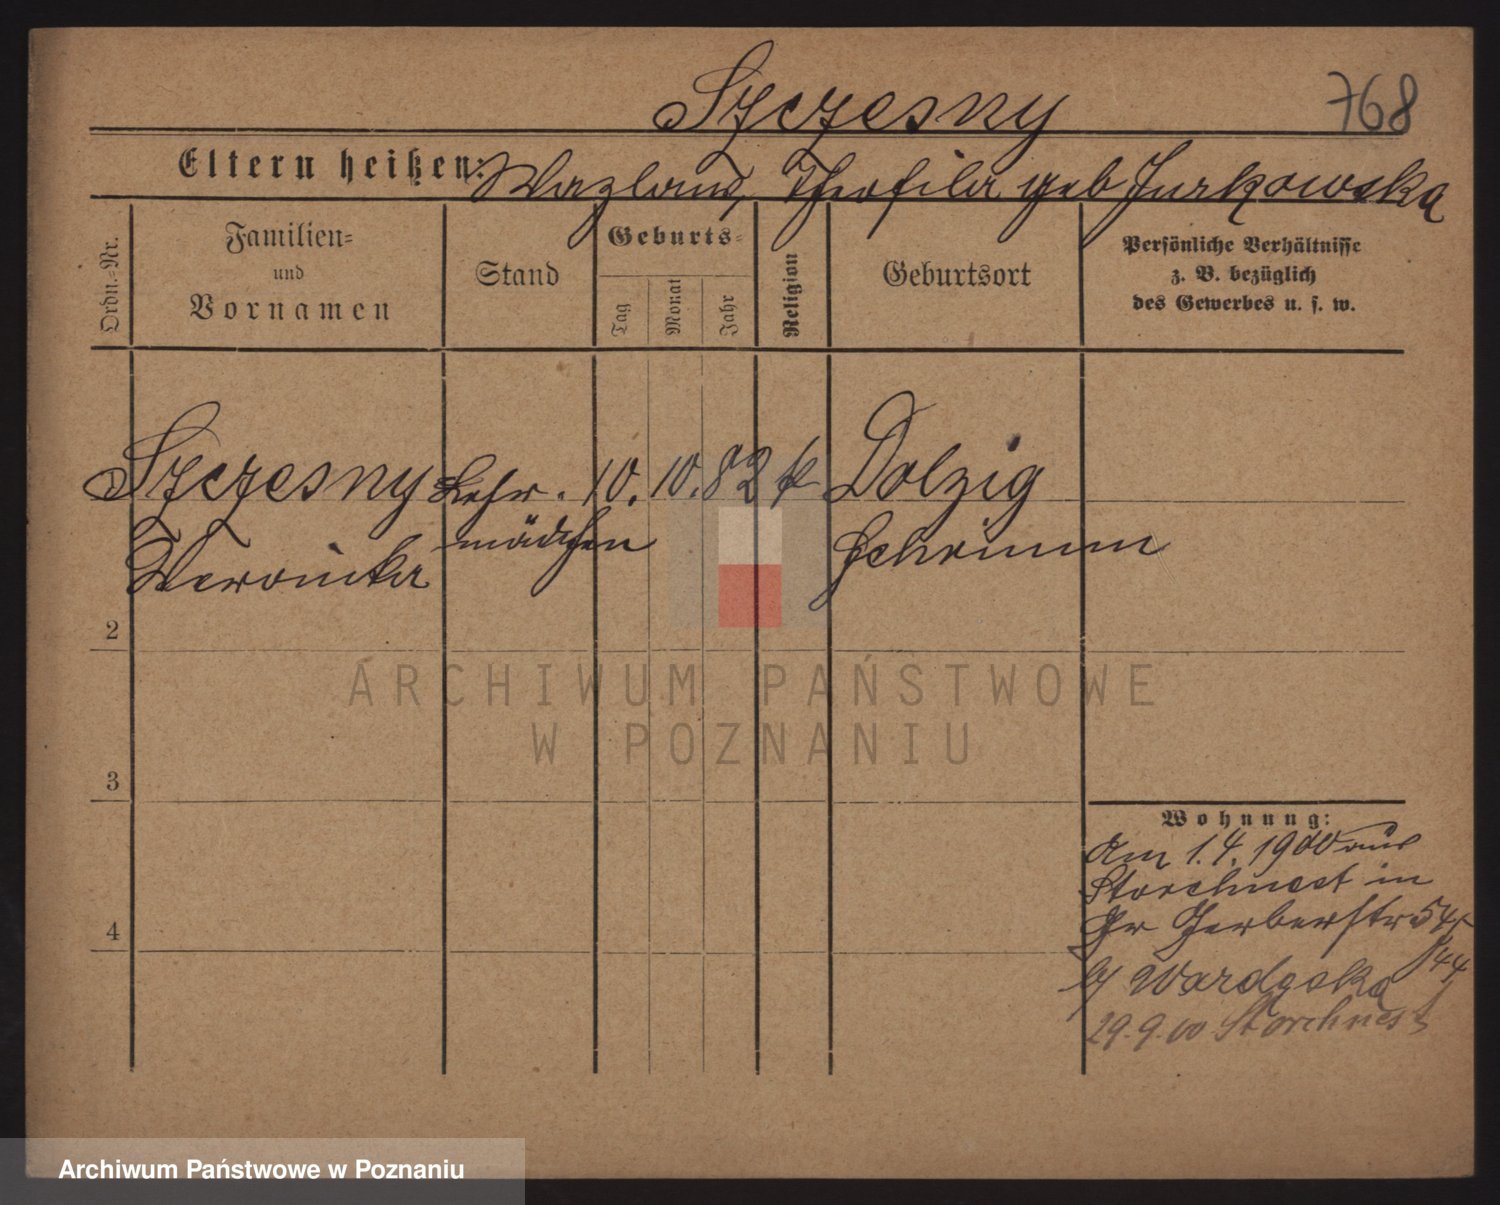 Szczesny
768
Eltern heißen: Wazlaus, Theofila geb Jurkowska
Ordn.-Nr.
Familien-
und
Vornamen
Stand
Geburts-
Tag
Monat
Jahr
Religion
Geburtsort
Persönliche Verhältnisse
z. B. bezüglich
des Gewerbes u. s. w.
Szczesny Lehr. 10. 10. 82 k Dolzig
mädchen Schrimm
Weronika
2
ARCHIWUM PAŃSTWOWE
W POZNANIU
3
Wohnung:
Am 1.4.1900 aus
Storchnest in
Gr Gerberstr 54
44
b/
29.9.00 Storchnest
4
Archiwum Państwowe w Poznaniu